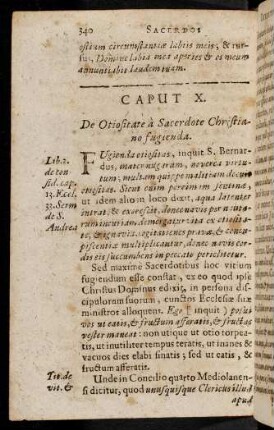 340 SACERDOS
ostium circumstantiæ labiis meis; & rur-
sus, Domine labia mea aperies & os meum
annuntiabit laudem tuam.
CAPUT X.
De Otiositate à Sacerdote Christia-
no fugienda.
Lib. 2.
de con
sid. cap.
13. Eccl.
33. Serm
de S.
Andrea
FUgienda otiositas, inquit S. Bernar-
dus, mater nugarum, noverca virtu-
tum; multam quippe malitiam docuit
otiositas. Sicut enim per rimam sentinæ,
ut idem alio in loco dixit, aqua latenter
intrat, & excrescit, donec navis
per incuriam, demergatur ita ex otiosita-
te, & ignavia cogitationes pravæ, & concu-
piscentiæ multiplicantur, donec navis cor-
dis eis succumbens in peccato periclitetur.
Sed maximè Sacerdotibus hoc vitium
fugiendum esse constat, ex eo quod ipsis
Christus Dominus edixit, in persona di-
scipulorum suorum, cunctos Ecclesiæ suæ
ministros alloquens. Ego (inquit) posui
vos ut eatis, & fructum afferatis, & fructus
vester maneat: non utique ut otio torpea-
tis, ut inutiliter tempus teratis, ut inanes &
vacuos dies elabi sinatis; sed ut eatis, &
fructum afferatis.
Tit. de
vit. &
Unde in Concilio quarto Mediolanen-
si dicitur, quod unusquisque Clericus illud
apud